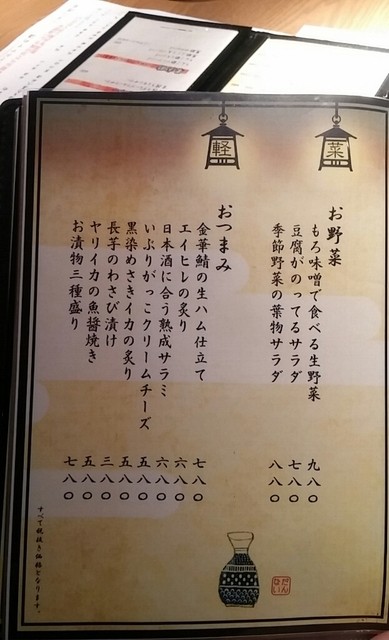 菜
お野菜
もろ味噌で食べる生野菜 九八〇
豆腐がのってるサラダ 七八〇
季節野菜の葉物サラダ 八八〇
軽
おつまみ
金華鯖の生ハム仕立て 七八〇
エイヒレの炙り 六八〇
日本酒に合う熟成サラミ 六八〇
いぶりがっこクリームチーズ 五八〇
黒染めさきイカの炙り 五八〇
長芋のわさび漬け 三八〇
ヤリイカの魚醤焼き 五八〇
お漬物三種盛り 七八〇
すべて税抜き価格となります。